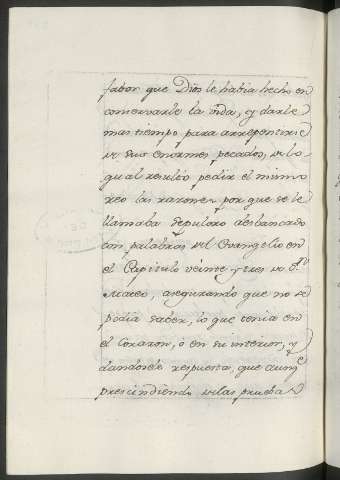 fabor que Dios le habia hecho en
conservarle la vida, y darle
mas tiempo para arrepentirse
de sus enormes pecados, de lo
qual resultó pedir el mismo
reo las razones por que se le
llamaba sepulcro desbancado
con palabras del Evangelio en
el Capitulo veinte y tres de Sn
Mateo, asegurando que no se
podia saber, lo que tenia en
el Corazon, ó en su interior, y
dandosele respuesta, que aunqe
prescindiendo de las pruebas